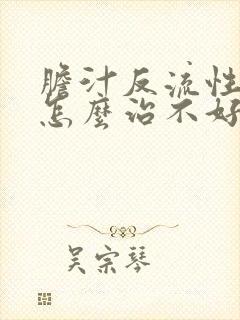 膽汁反流性
怎麼治不好
吴宗琴